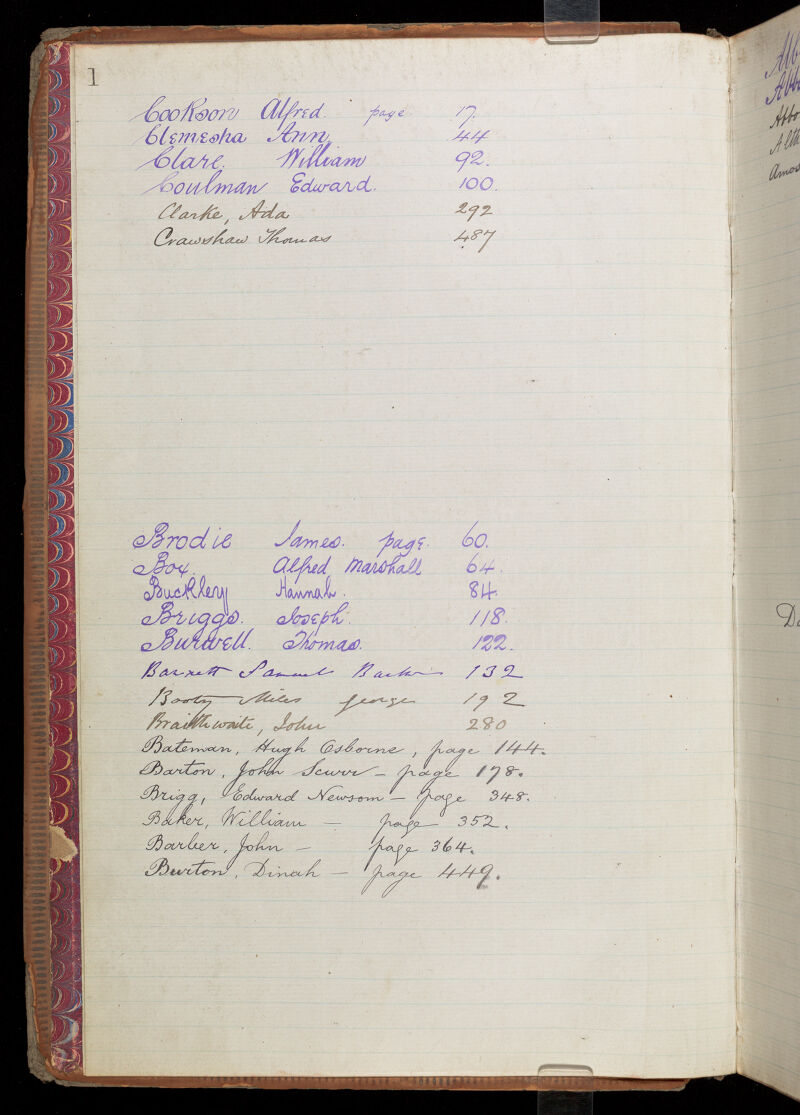 1
Cookson Alfred. page 17.
Clemesha Ann 44
Clare. William 92.
Coulman Edward. 100.
Clarke, Ada 292
Crawshaw Thomas 487
Brodie James. page. 60.
Box. Alfred Marshall 64.
Buckley Hannah. 84
Briggs. Joseph. 118.
Burwell. Thomas. 122.
Barnett Samuel 132
Booty Miles george 192
Braithwaite, John 280
Bateman, Hugh Osborne, page 144.
Barton, John Scurr - page 178.
Brigg, Edward Newsom - page 348.
Baker, William - page 352.
Barber, John - page 364.
Burton, Dinah - page 449.